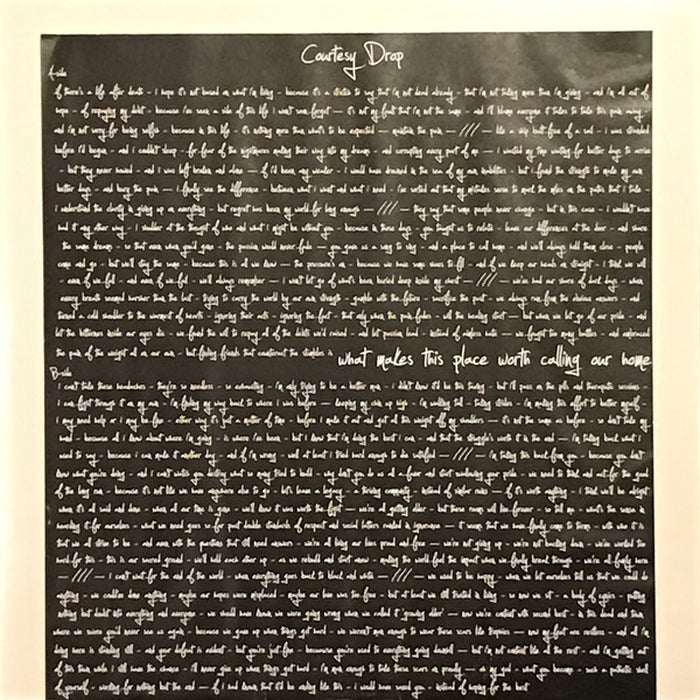 Courtesy Drop
A-side
if there's a life after death - i hope it's not based on what i'm living - because it's a stretch to say that i'm not dead already - that i'm not taking more than i'm giving - and i'm all out of
hope - of repaying my debt - because i've seen a side of this life i won't soon forget - it's not my fault that i'm not the same - and i'll blame everyone it takes to take this pain away
and i'm not sorry for being selfish - because in this life - it's nothing more than what's to be expected - maintain the pain - //// - like a ship but free of a sail - i was stranded
before i'd begun - and i couldn't sleep - for fear of the nightmares making their way into my dreams - and corrupting every part of me - i wasted my time waiting for better days to arrive
- but they never showed - and i was left broken and alone - if i'd been any weaker - i would have drowned in the sea of my own instabilities - but i found the strength to make my own
better days - and bury the pain - i finally see the difference - between what i want and what i need - i've sorted out that my mistakes seem to meet the miles on the paths that i take -
i understand the clarity in giving up on everything - but regret has been my world for long enough - //// - they say that some people never change - but in this case - i wouldn't have
had it any other way - i shudder at the thought of who and what i might be without you - because in these days - you taught us to relate - leave our differences at the door - and share
the same dreams - so that even when youth goes - the passion would never fade - you gave us a way to stay - and a place to call home - and we'll always hold them close - people
come and go - but we'll stay the same - because this is all we know - the pressure's on - because we have some shoes to fill - and if we keep our heads on straight - i think we will
- even if we fall - and even if we fail - we'll always remember - i won't let go of what's been buried deep inside my chest - //// - we've had our share of dark days - when
every breath seemed harder than the last - trying to carry the world by our own strength - gamble with the future - sacrifice the past - we always run from the obvious answers - and
turned a cold shoulder to the warmest of hearts - ignoring their acts - ignoring the fact - that only when the pain fades - will the healing start - but when we let go of our pride - and
let the bitterness inside our eyes die - we found the will to repay all of the debts we'd raised - and let passion lead - instead of useless hate - we fought too many battles - and embraced
the pain of the weight all on our own - but finding friends that conquered the struggles is what makes this place worth calling our home
B-side
i can't take these headaches - they're so needless - so exhausting - i'm only trying to be a better man - i didn't know it'd be this taxing - but i'll pass on the pills and therapeutic sessions -
i can fight through it on my own - i'm finding my way back to where i was before - keeping my chin up high - i'm walking tall - taking strides - i'm making this effort to better myself
i may need help or i may be fine - either way it's just a matter of time - before i make it out and get all this weight off my shoulders - it's not the same as before - i don't take my
meds - because all i know about where i'm going - is where i've been - but i know that i'm doing the best i can - and that the struggle's worth it in the end - i'm taking back what i
used to say - because i can make it another day - and if i'm wrong - well at least i tried hard enough to be satisfied - //// - i'm taking this back from you - because you don't
know what you're doing - and i can't watch you destroy what so many tried to build - why don't you do us all a favor and start swallowing your pride - we need to think and act for the good
of the long run - because it's not like we have anywhere else to go - let's leave a legacy - a thriving community - instead of violent ruins - if it's worth anything - i think we'll be alright
when it's all said and done - when all our time is gone - we'll know it was worth the fight - we're all getting older - but these rooms will live forever - so tell me what's the sense in
hoarding it for ourselves - what we need goes so far past double standards of respect and social letters rooted in ignorance - it seems that we have finally come to terms - with who it is
that we all strive to be - and even with the questions that still need answers - we're all living our lives proud and free - we're not giving up - we're not backing down - we've worked too
hard for this - this is our sacred ground - we'll hold each other up - as we rebuild and start anew - making the world feel the impact when we finally break through - we're all finally here
- //// - i can't wait for the end of the world - when everything goes back to black and white - //// - we used to be happy - when we let ourselves tell us that we could do
anything - we could've done anything - maybe our hopes were misplaced - maybe our love was too free - but at least we still trusted in living - so now we sit - a body of cynics - putting
nothing but doubt into everything and everyone - we should have known we were going wrong when we called it "growing older" - and now we're content with second best - in this dead end town
where we swore you'd never see us again - because we gave up when things got hard - we weren't man enough to wear these scars like trophies - now my feet are restless - and all i'm
doing here is standing still - and your defeat is evident - but you're just fine - because you're used to everything going downhill - but i'm not content like all the rest - and i'm getting out
of this town while i still have the chance - i'll never give up when things get hard - i'm man enough to take these scars so proudly - oh my god - what you became - such a pathetic shell
of yourself - waiting for nothing but the end - if i had known that it'd be ending like this - i would have saved you - instead of hoping for the best